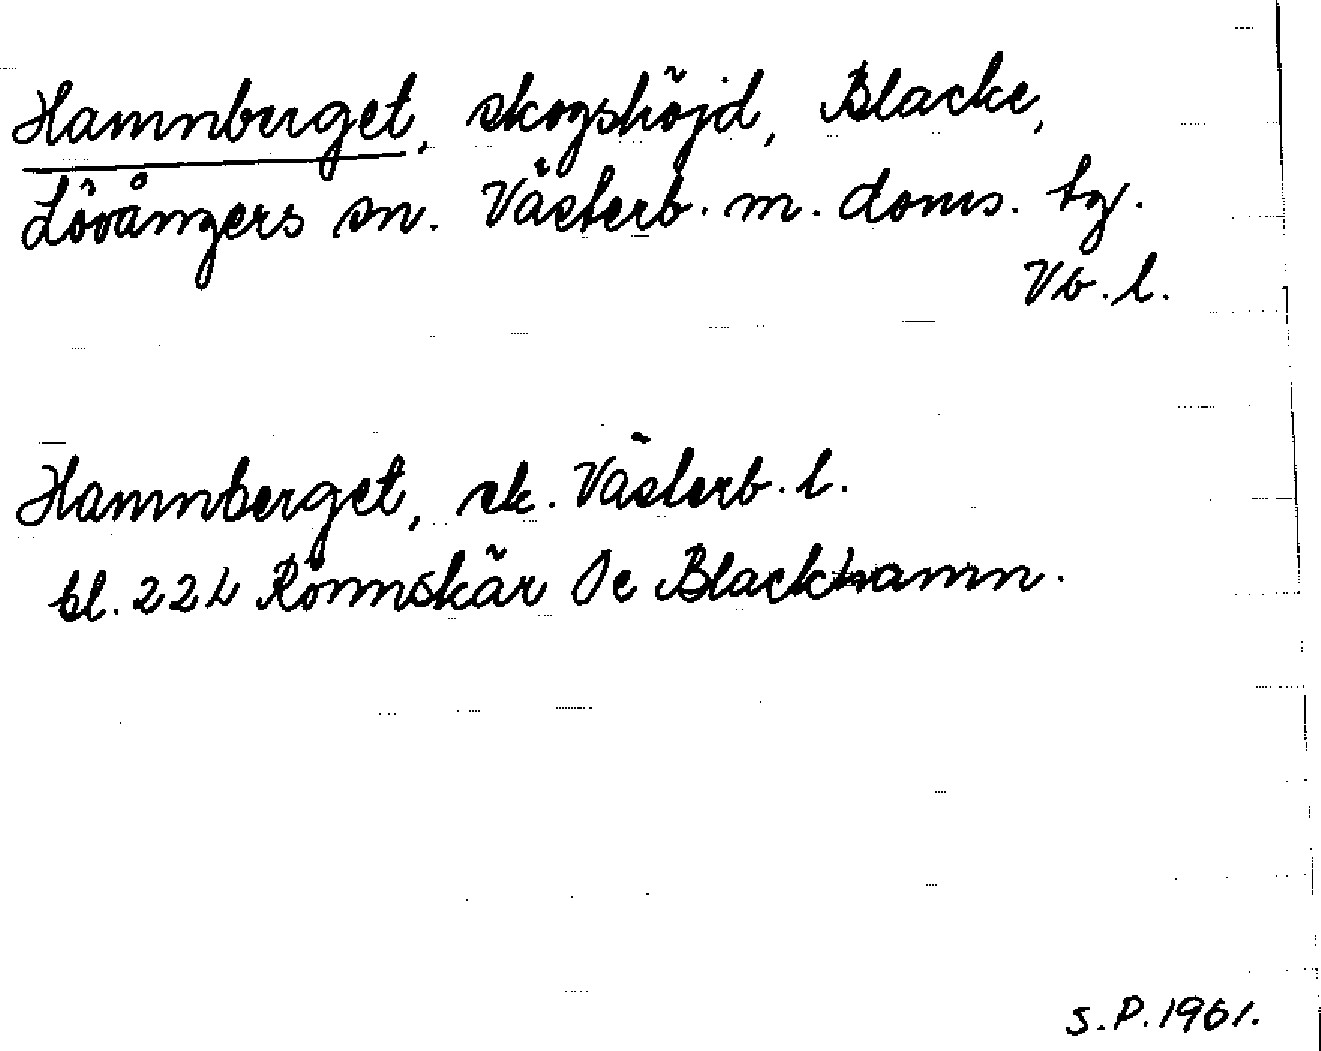 Hamnberget, skogshöjd, Blacke,
Lövångers sn. Västerb. m. doms. tg.
Vb. l.
Hamnberget, ek. Västerb. l.
bl. 22L Rönnskär Se Blackhamn.
S. P. 1961.